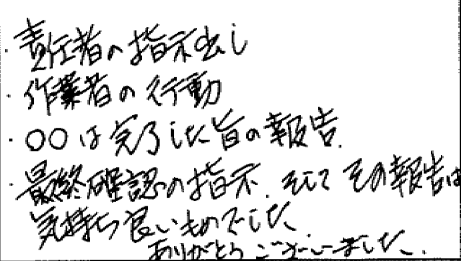 ・責任者の指示出し
・作業者の行動
・〇〇は完了した旨の報告.
・最終確認の指示、そして その報告は
気持ち良いものでした.
ありがとうございました.